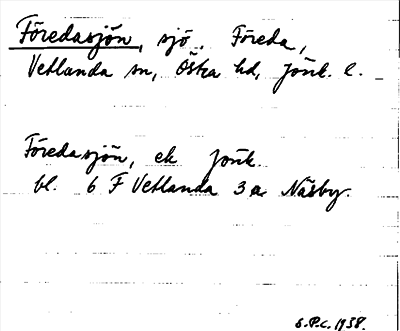 Föredasjön, sjö. Föreda,
Vetlanda sn, Östra hd, Jönk. l.
Föredasjön, ek Jönk.
bl. 6 F Vetlanda 3 a Näsby.
S.P.c. 1938.